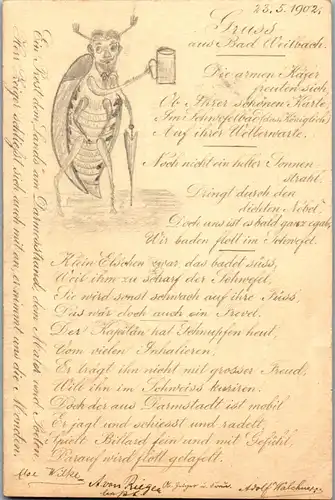 23.5.1902.
Gruss
aus Bad Weilbach.
Die armen Käfer
freuten sich,
Ob Ihrer schönen Karte
Im Schwefelbad (etwas Königlich)
Auf ihrer Wetterwarte.
Noch nicht ein heller Sonnen
strahl,
Dringt durch den
dichten Nebel,
Doch uns ist es bald ganz egal,
Wir baden flott im Schwefel.
Klein Elschen zwar das badet süss,
Weil ihm zu scharf der Schwefel,
Sie wird sonst schwach auf ihre Füss,
Das wär doch auch ein Frevel.
Der Kapitän hat Schnupfen heut,
Vom vielen Inhalieren,
Er trägt ihn nicht mit grosser Freud,
Will ihn im Schweiss kurieren.
Doch der aus Darmstadt ist mobil
Er jagt und schiesst und radelt,
Spielt Billard fein und mit Gefühl,
Darauf wird flott gefaselt.
Ein Prost dem Lands am Darmstrand, dem Maler und Poeten
Herr Rieger schließt sich auch mit an, er nimmt was die
Else Wilke
A von Rieger
Adolf